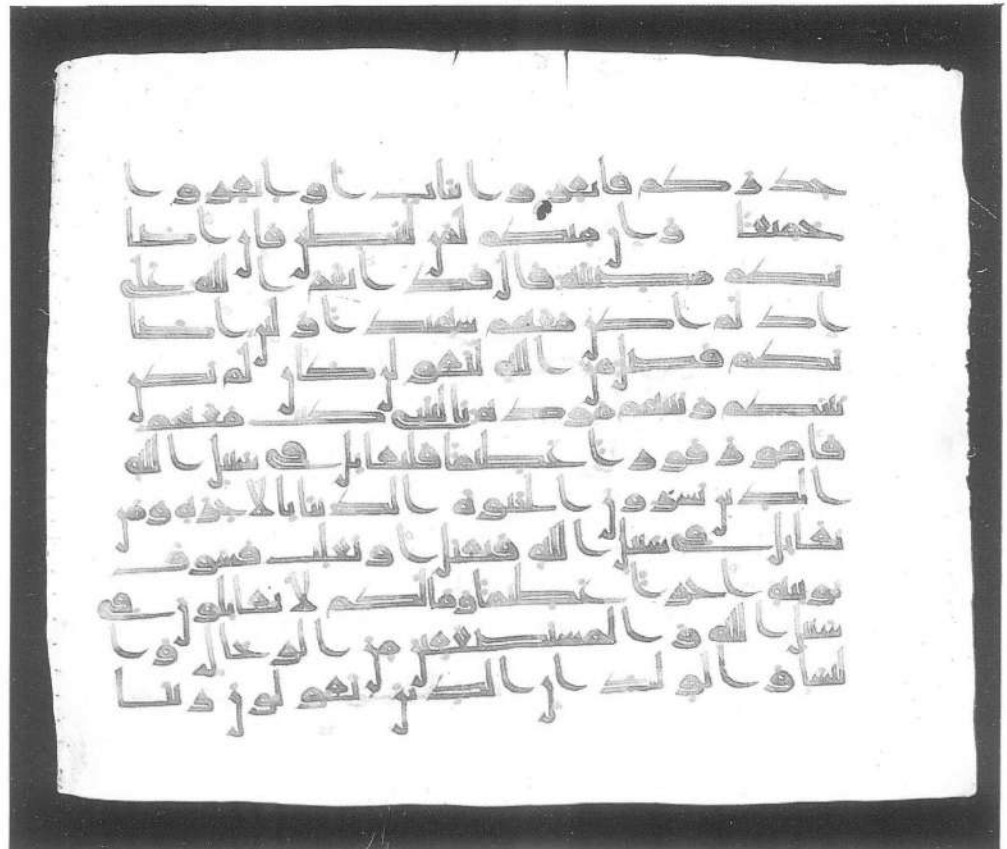 حذركم فانفروا ثبات او انفروا
جميعا وان منكم لمن ليبطين فان اصا
بتكم مصيبه قال قد انعم الله علي
اذ لم اكن معهم شهيدا ولين اصا
بكم فضل من الله ليقولن كان لم تكن
بينكم وبينه موده يليتني كنت معهم
فافوز فوزا عظيما فليقاتل في سبيل الله
الذين يشرون الحيوه الدنيا بالاخره ومن
يقاتل في سبيل الله فيقتل او يغلب فسوف
نوتيه اجرا عظيما وما لكم لا تقاتلون في
سبيل الله والمستضعفين من الرجال وا
لنسا والولدان الذين يقولون ربنا